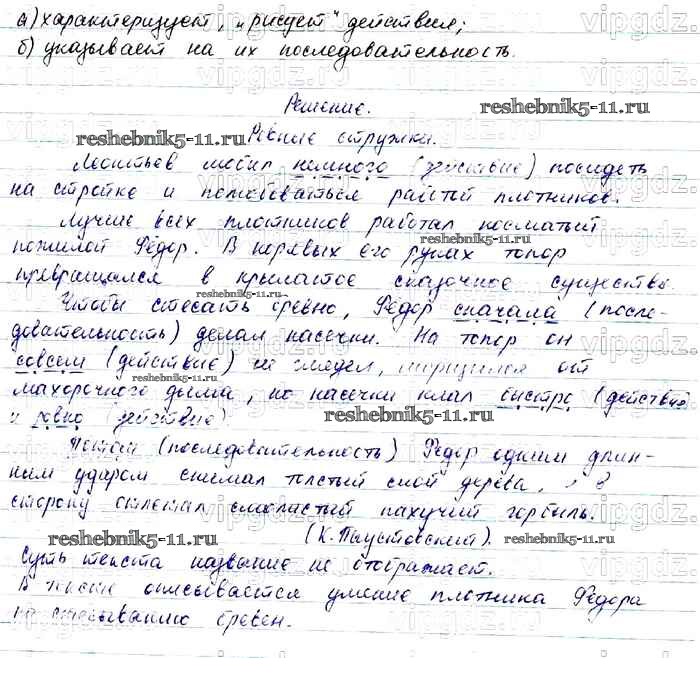 а) характеризует, „рисует" действия;
б) указывает на их последовательность.
Решение.
reshebnik5-11.ru
reshebnik5-11.ru
Ровные стружки.
Леонтьев любил немного (действие) посидеть
на стройке и полюбоваться работой плотников.
Лучше всех плотников работал косматый
пожилой Фёдор. В корявых его руках топор
reshebnik5-11.ru
превращался в крылатое сказочное существо.
reshebnik5-11.ru
Чтобы стесать бревно, Фёдор сначала (после-
довательность) делал насечки. На топор он
совсем (действие) не глядел, от
reshebnik5-11.ru
махорочного дыма, но насечки клал быстро (действие)
и ровно (действие).
reshebnik5-11.ru
Потом (последовательность) Фёдор одним длин-
ным ударом снимал толстый слой дерева, в
сторону отлетал слоистый пахучий горбыль.
reshebnik5-11.ru
(К. Паустовский).
reshebnik5-11.ru
Суть текста название не отображает.
В тексте описывается умение плотника Фёдора
по стёсыванию бревен.
vipgdz.ru